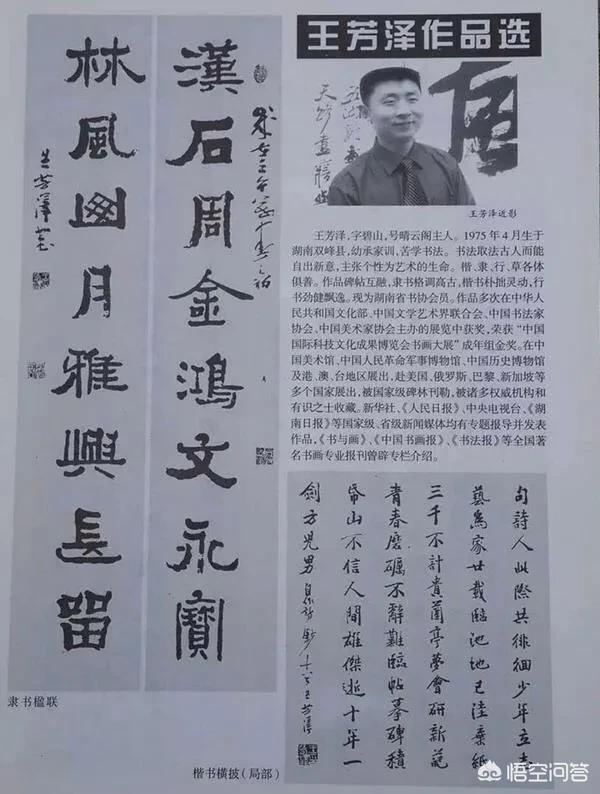 王芳泽作品选
漢石周金鴻文永寶
林風幽月雅興長留
王芳澤
王芳泽近影
王芳泽,字碧山,号晴云阁主人。1975年4月生于
湖南双峰县,幼承家训,苦学书法。书法取法古人而能
自出新意,主张个性为艺术的生命。楷、隶、行、草各体
俱善。作品碑帖互融,隶书格调高古,楷书朴拙灵动,行
书劲健飘逸。现为湖南省书协会员。作品多次在中华人
民共和国文化部、中国文学艺术界联合会、中国书法家
协会、中国美术家协会主办的展览中获奖,荣获“中国
国际科技文化成果博览会书画大展”成年组金奖。在中
国美术馆、中国人民革命军事博物馆、中国历史博物馆
及港、澳、台地区展出,赴美国、俄罗斯、巴黎、新加坡等
多个国家展出,被国家级碑林刊勒,被诸多权威机构和
有识之士收藏。新华社、《人民日报》、中央电视台、《湖
南日报》等国家级、省级新闻媒体均有专题报导并发表
作品,《书与画》、《中国书画报》、《书法报》等全国著
名书画专业报刊曾辟专栏介绍。
句詩人此際共徘徊少年立志
藝為家廿載臨池地已洼棄紙
三千不計貴蘭亭夢會研新
青春磨礪不辭難臨帖摹碑積
帋山不信人間雄傑逝十年一
劍方兒男 王芳澤
隶书楹联
楷书横披(局部)
悟空问答